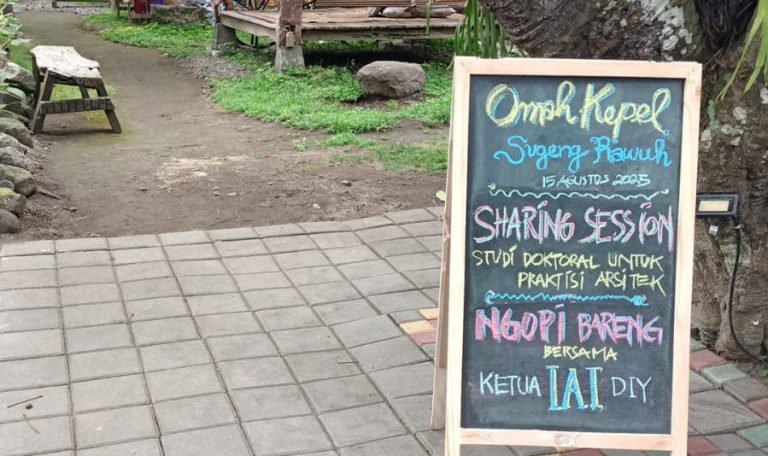 Omah Kepel
Sugeng Rawuh
15 AGUSTUS 2025
SHARING SESSION
STUDI DOKTORAL UNTUK
PRAKTISI ARSITEK
NGOPI BARENG
BERSAMA
KETUA IAI DIY